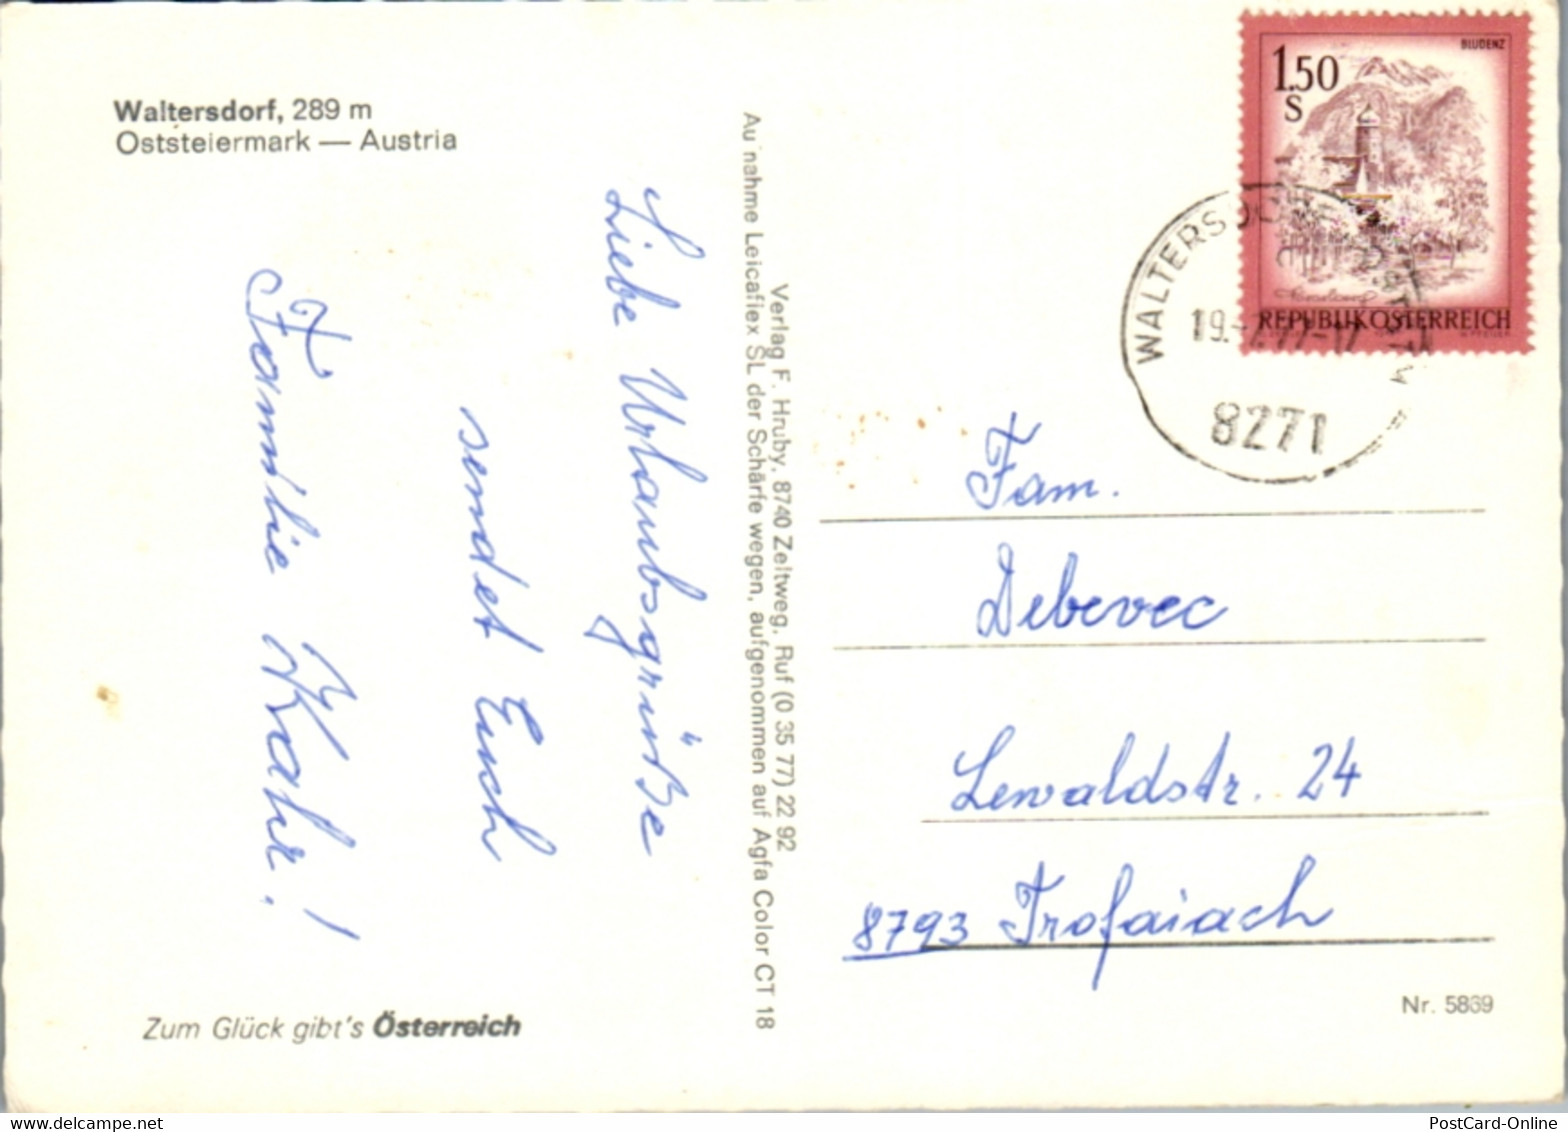 Waltersdorf, 289 m
Oststeiermark — Austria
Liebe Urlaubsgrüße
sendet Euch
Familie Kahr!
Zum Glück gibt's Österreich
Verlag F. Hruby, 8740 Zeltweg, Ruf (0 35 77) 22 92
Au nahme Leicaflex SL der Schärfe wegen, aufgenommen auf Agfa Color CT 18
BLUDENZ
1.50
S
REPUBLIK ÖSTERREICH
WALTERSDORF
19.
8271
Fam.
Debevec
Lewaldstr. 24
8793 Trofaiach
Nr. 5869
PostCard-Online